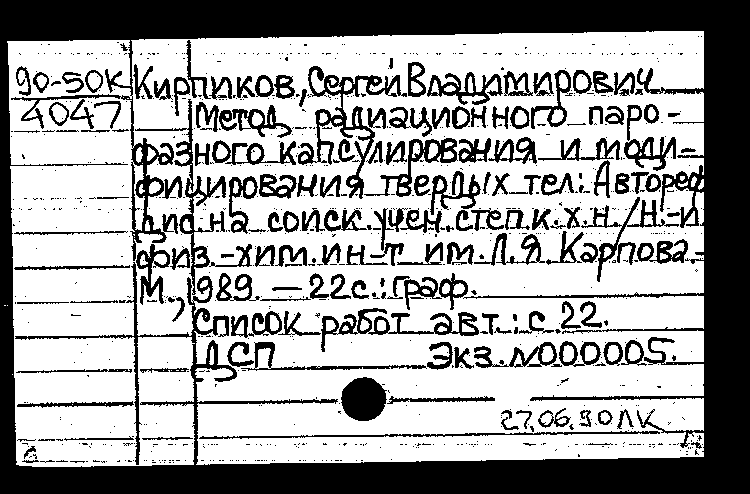 90-50К Кирпиков, Сергей Владимирович
4047 Метод радиационного паро-
фазного капсулирования и моди-
фицирования твердых тел: Автореф
дис. на соиск. учен. степ. к. х. н. / Н.-и
физ.-хим. ин-т им. Л. Я. Карпова.-
М., 1989. — 22 с.: граф.
Список работ авт.: с. 22.
ДСП Экз. N000005.
27.06.90 ЛК